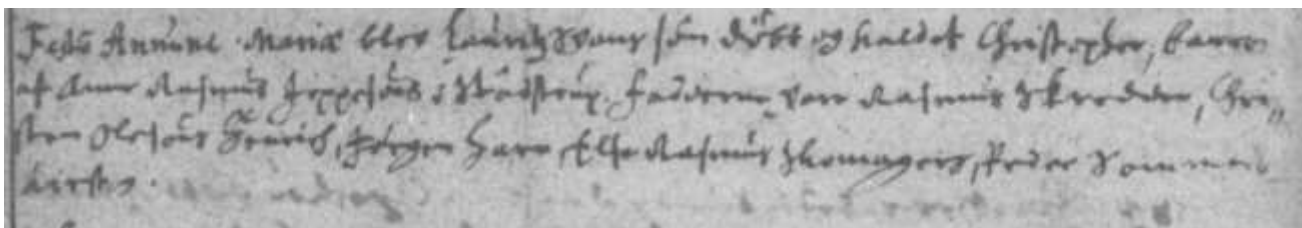 Festo Annunc. Mariæ blev Lauritz Svans søn døbt og kaldet Christopher, baaren
af Anne Rasmus Jeppesøns i Stadstrup. Faderne vare Rasmus Skredder, Chri=
sten Olesøns Henrich, Jørgen Harn, Else Rasmus Skomagers, Peder Sommers